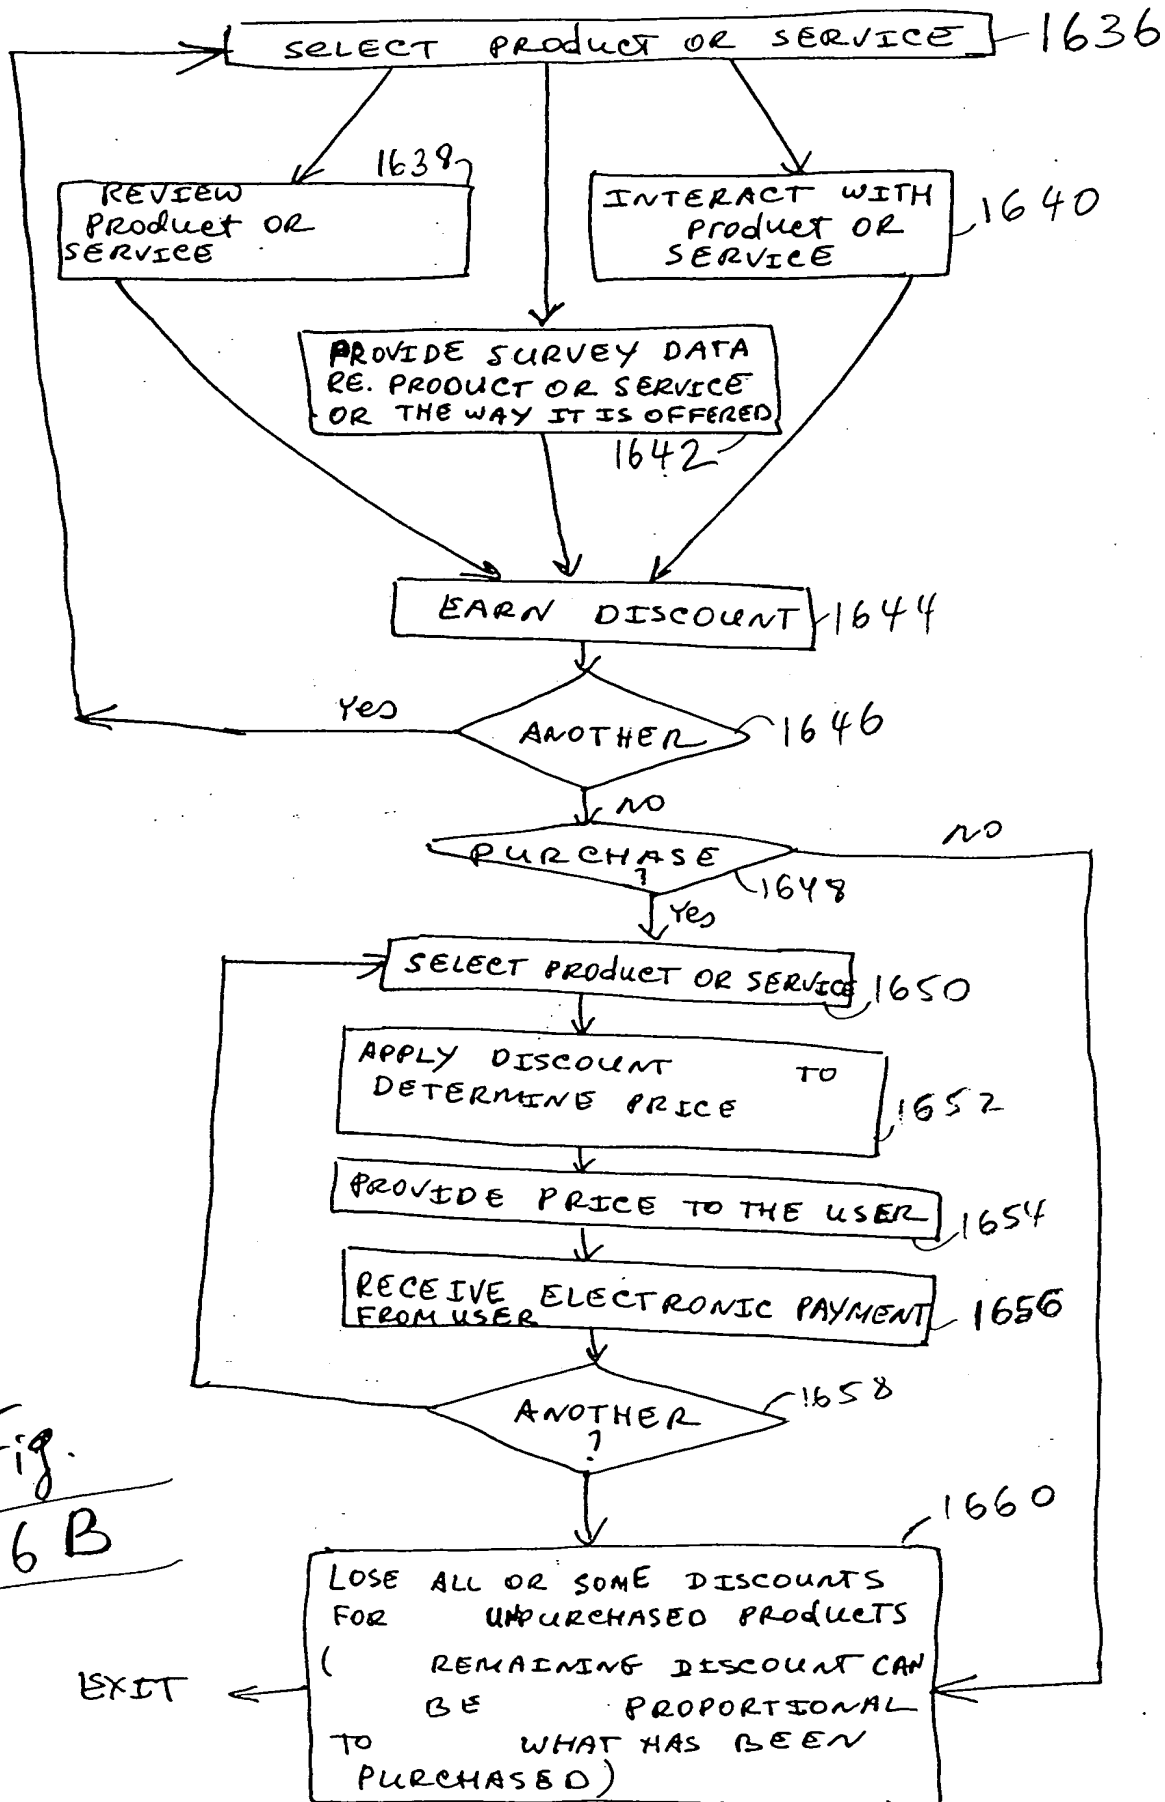 SELECT PRODUCT OR SERVICE
1636
1638
REVIEW
PRODUCT OR
SERVICE
INTERACT WITH
PRODUCT OR
SERVICE
1640
PROVIDE SURVEY DATA
RE. PRODUCT OR SERVICE
OR THE WAY IT IS OFFERED
1642
EARN DISCOUNT
1644
Yes
ANOTHER
1646
NO
PURCHASE
?
NO
1648
Yes
SELECT PRODUCT OR SERVICE
1650
APPLY DISCOUNT TO
DETERMINE PRICE
1652
PROVIDE PRICE TO THE USER
1654
RECEIVE ELECTRONIC PAYMENT
FROM USER
1656
ANOTHER
?
1658
Fig.
6 B
1660
LOSE ALL OR SOME DISCOUNTS
FOR UNPURCHASED PRODUCTS
( REMAINING DISCOUNT CAN
BE PROPORTIONAL
TO WHAT HAS BEEN
PURCHASED)
EXIT